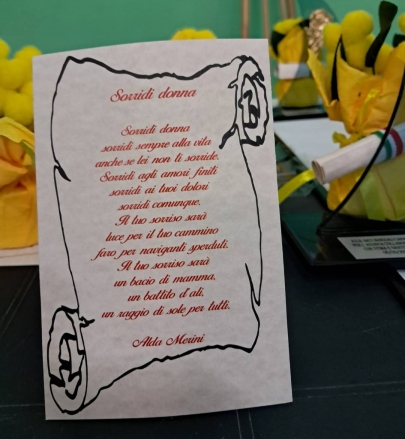 Sorridi donna
Sorridi donna
sorridi sempre alla vita
anche se lei non ti sorride.
Sorridi agli amori finiti
sorridi ai tuoi dolori
sorridi comunque.
Il tuo sorriso sarà
luce per il tuo cammino
faro per naviganti sperduti.
Il tuo sorriso sarà
un bacio di mamma,
un battito d'ali,
un raggio di sole per tutti.
Alda Merini